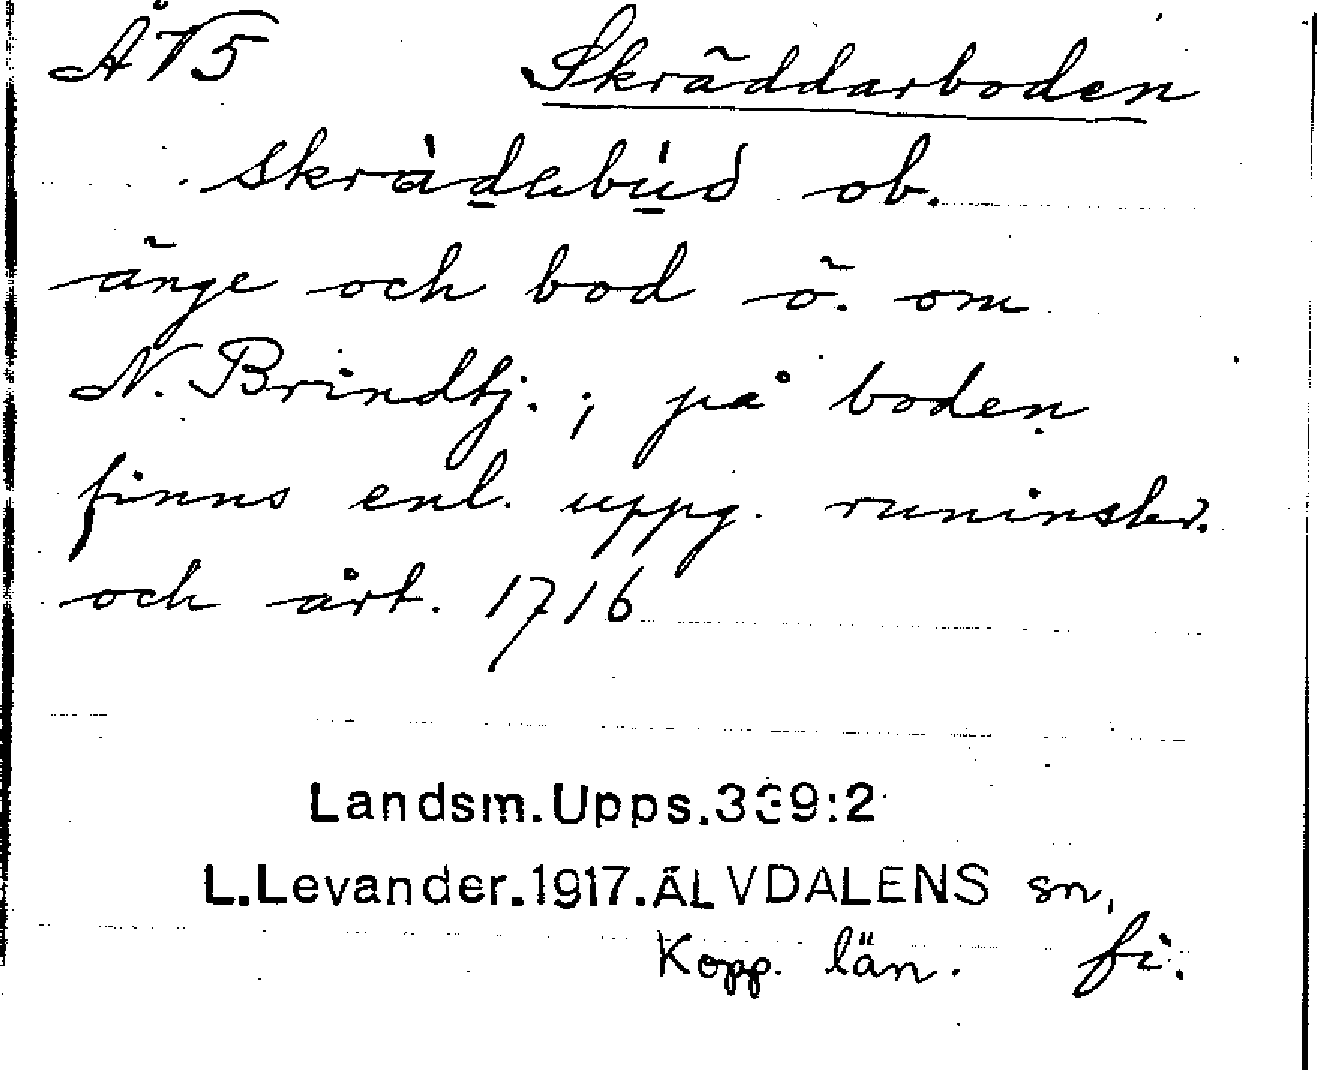 ÅV5 Skräddarboden
skräd̲ab̲ùd ob.
änge och bod ö. om
N. Brindtj.; på boden
finns enl. uppg. runinskr.
och årt. 1716
Landsm.Upps.339:2
L.Levander.1917.ÄLVDALENS sn,
Kopp. län. fi.